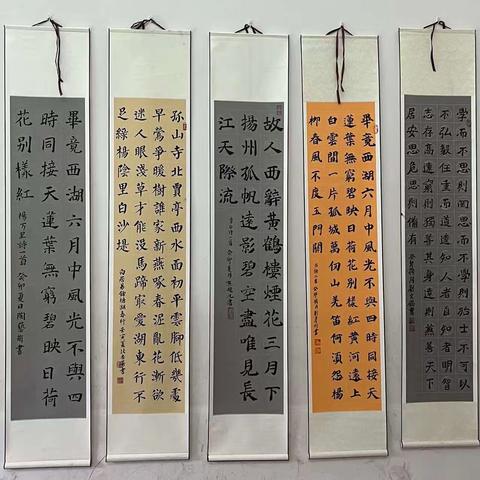 畢竟西湖六月中風光不與四
時同接天蓮葉無窮碧映日荷
花別樣紅 楊万里詩一首 癸卯夏日陶藝蘭書
孤山寺北賈亭西水面初平雲腳低幾處
早鶯爭暖樹誰家新燕啄春泥亂花漸欲
迷人眼淺草才能沒馬蹄最愛湖東行不
足綠楊陰里白沙堤
白居易錢塘湖春行
故人西辭黃鶴樓煙花三月下
揚州孤帆遠影碧空盡唯見長
江天際流
畢竟西湖六月中風光不與四時同接天
蓮葉無窮碧映日荷花別樣紅黃河遠上
白雲間一片孤城萬仞山羌笛何須怨楊
柳春風不度玉門關
學而不思則罔思而不學則殆士不可以
不弘毅任重而道遠知人者自知者明智
志存高遠窮則獨善其身達則兼善天下
居安思危思則有備